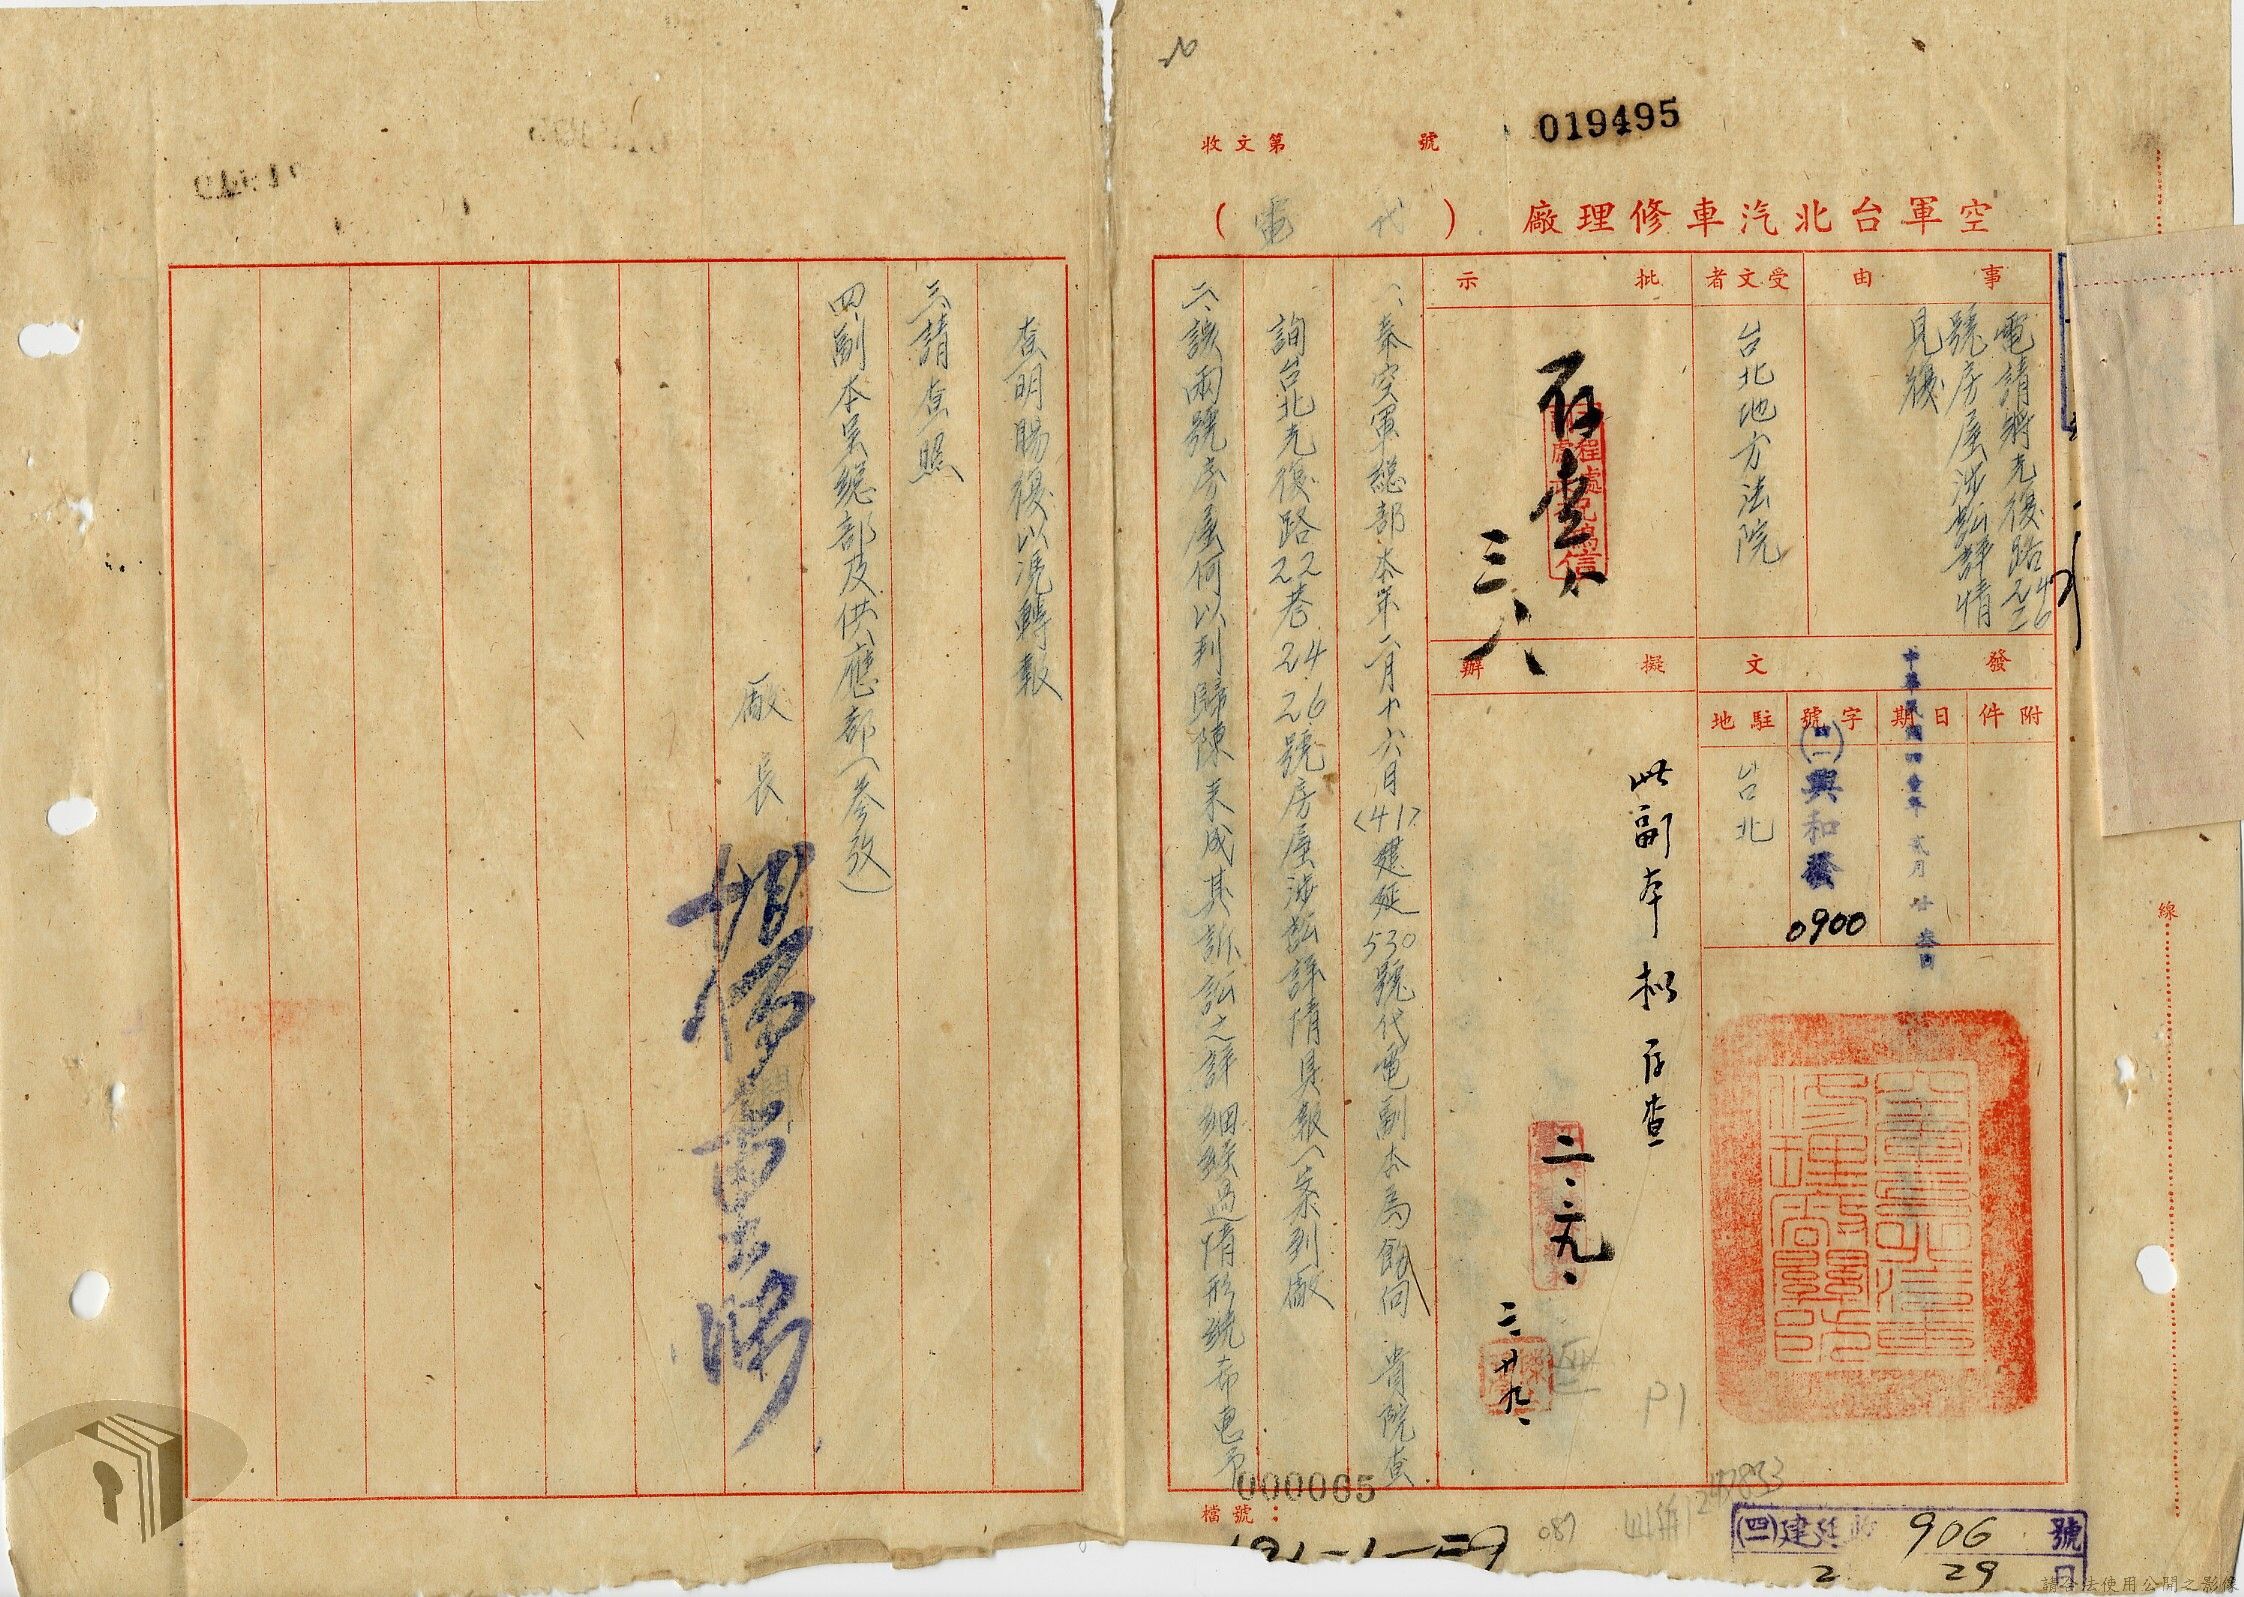 019495
收文第 號
空軍台北汽車修理廠（代電）
事由
電請將光復路24 26
號房屋涉訟詳情
見復
受文者
台北地方法院
批示
存查
三八
擬辦
此副本擬存查
二.廿九.
二、廿九、
發文
附件
日期
中華民國四壹年貳月廿叁日
字號
(四一)興和發
0900
駐地
台北
一、奉空軍總部本年二月十六日(41)建延530號代電副本為飭向 貴院查
詢台北光復路22巷24 26號房屋涉訟詳情具報一案到廠
二、該兩號房屋何以判歸陳來成其訴訟之詳細經過情形統希惠予
查明賜復以憑轉報
三、請查照
四、副本呈總部及供應部(參攷)
廠長
空軍台北汽車
修理廠關防
000065
檔號：
P1
087
(四一)建延 906 號
2 29 日
線
請合法使用公開之影像